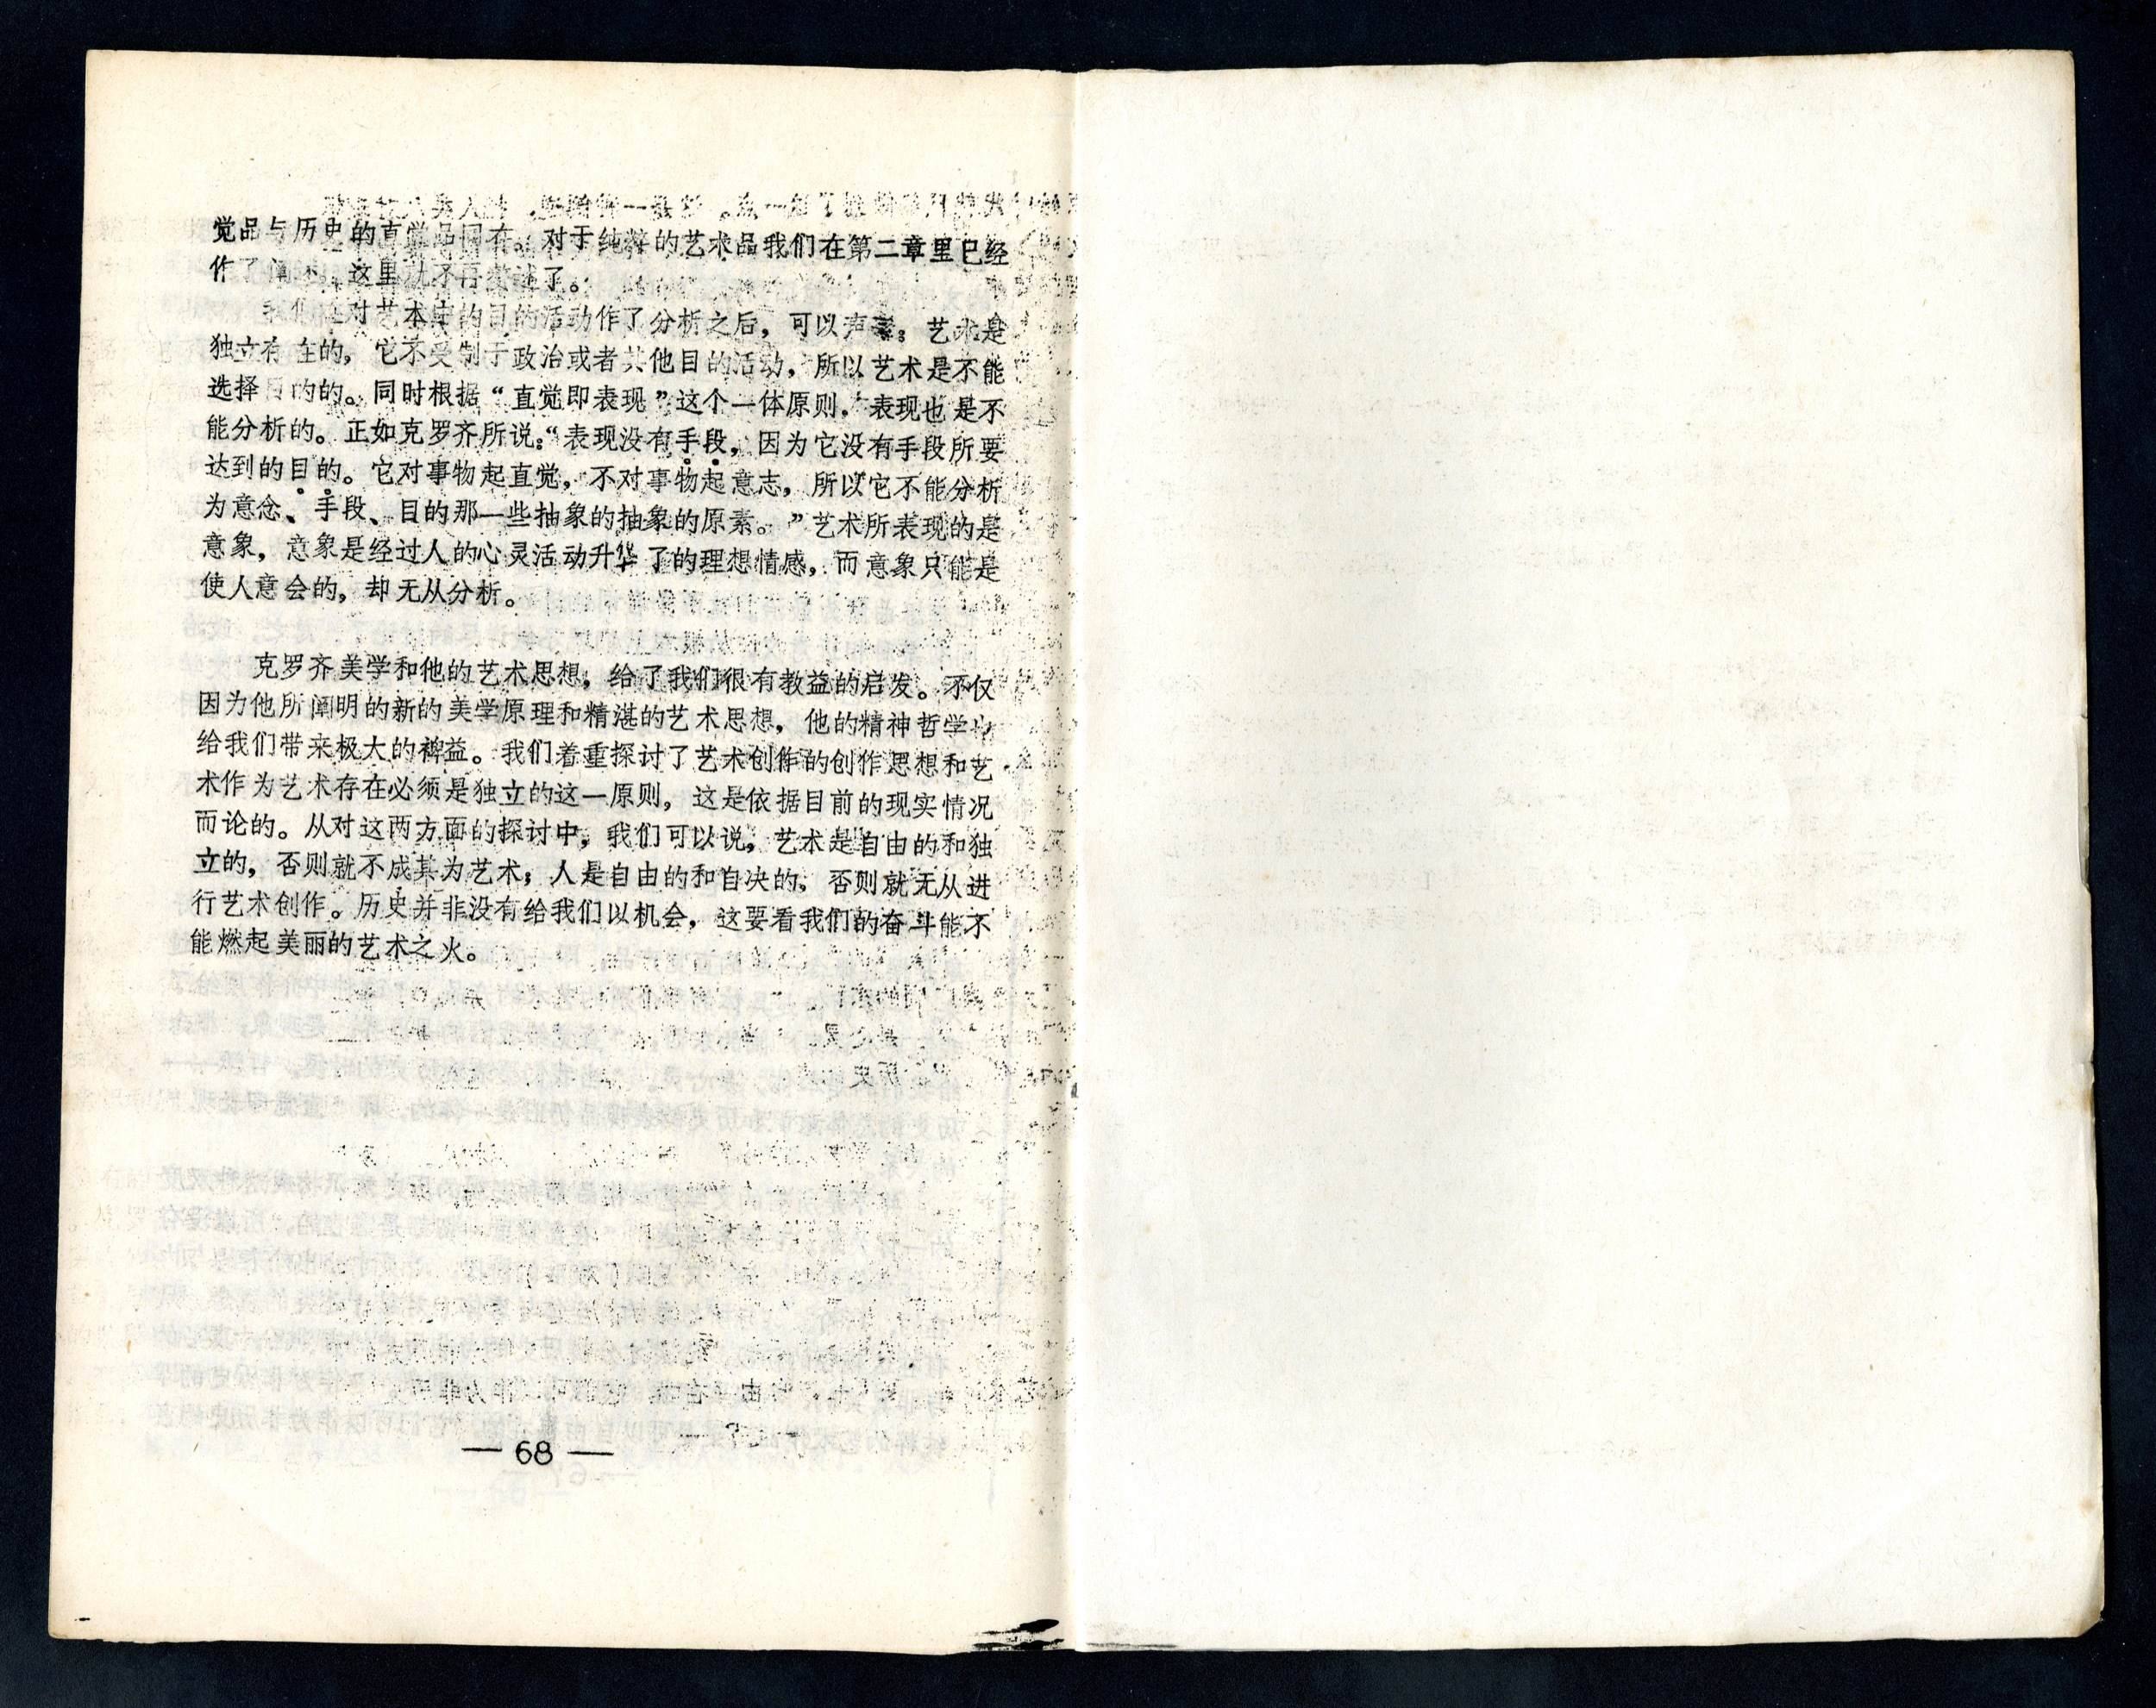 觉品与历史的直觉品同在。对于纯粹的艺术品我们在第二章里已经
作了阐述，这里就不再赘述了。
我们在对艺术中的目的活动作了分析之后，可以声言：艺术是
独立存在的，它不受制于政治或者其他目的活动，所以艺术是不能
选择目的的。同时根据“直觉即表现”这个一体原则，表现也是不
能分析的。正如克罗齐所说：“表现没有手段，因为它没有手段所要
达到的目的。它对事物起直觉，不对事物起意志，所以它不能分析
为意念、手段、目的那一些抽象的抽象的原素。”艺术所表现的是
意象，意象是经过人的心灵活动升华了的理想情感，而意象只能是
使人意会的，却无从分析。
克罗齐美学和他的艺术思想，给了我们很有教益的启发。不仅
因为他所阐明的新的美学原理和精湛的艺术思想，他的精神哲学也
给我们带来极大的裨益。我们着重探讨了艺术创作的创作思想和艺
术作为艺术存在必须是独立的这一原则，这是依据目前的现实情况
而论的。从对这两方面的探讨中，我们可以说，艺术是自由的和独
立的，否则就不成其为艺术；人是自由的和自决的，否则就无从进
行艺术创作。历史并非没有给我们以机会，这要看我们的奋斗能不
能燃起美丽的艺术之火。
— 68 —